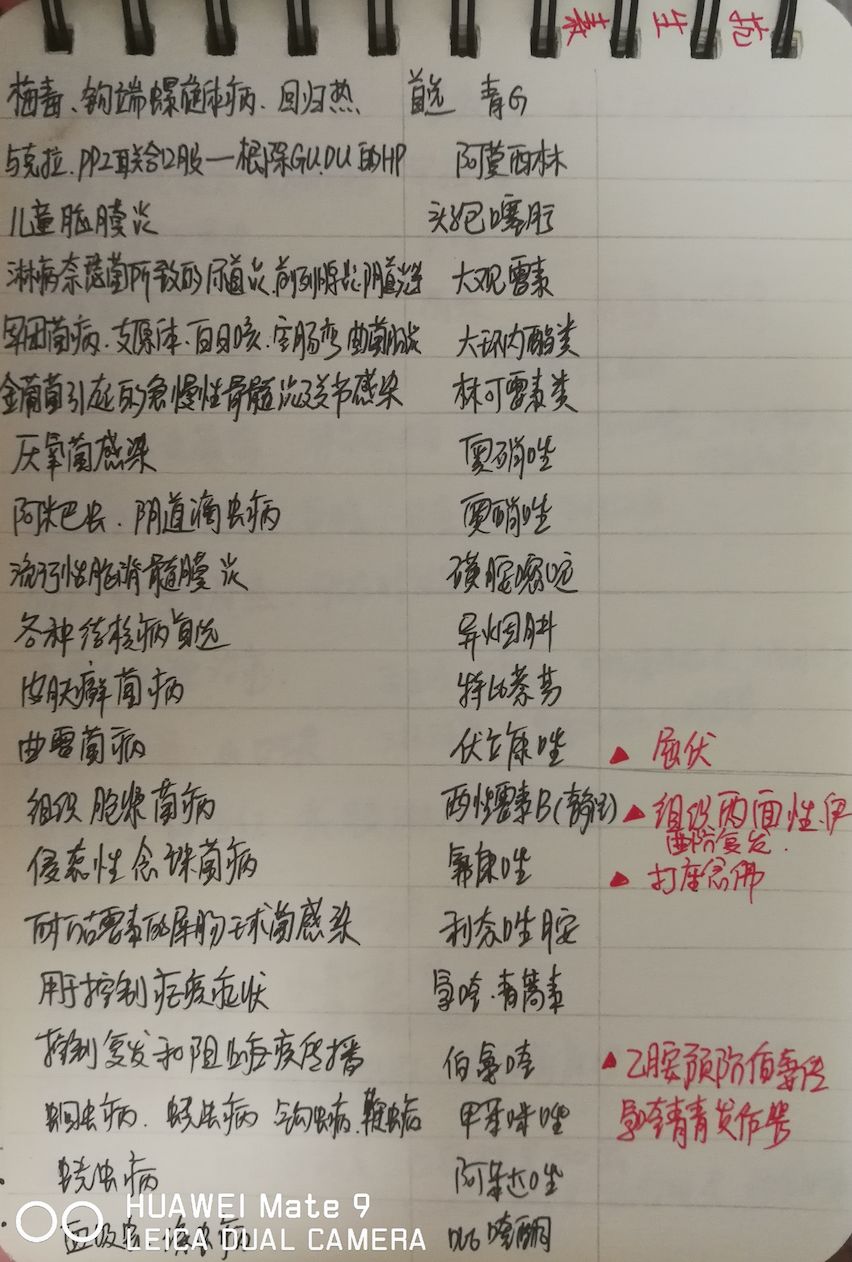 抗生素
梅毒、钩端螺旋体病、回归热、 首选 青G
与克拉、PPI联合口服—根除GU.DU的HP 阿莫西林
儿童脑膜炎 头孢噻肟
淋病奈瑟菌所致的尿道炎、前列腺炎、阴道炎等 大观霉素
军团菌病、支原体、百日咳、空肠弯曲菌肠炎 大环内酯类
金葡菌引起的急慢性骨髓炎及关节感染 林可霉素类
厌氧菌感染 奥硝唑
阿米巴虫、阴道滴虫病 奥硝唑
流行性脑脊髓膜炎 磺胺嘧啶
各种结核病首选 异烟肼
皮肤癣菌病 特比萘芬
曲霉菌病 伏立康唑 ▲ 屈伏
组织胞浆菌病 两性霉素B(静注) ▲ 组织两面性.伊
曲防复发.
侵袭性念珠菌病 氟康唑 ▲ 打座念佛
耐万古霉素的屎肠球菌感染 利奈唑胺
用于控制疟疾症状 氯喹.青蒿素
控制复发和阻止疟疾传播 伯氨喹 ▲ 乙胺预防伯氨传
蛔虫病、蛲虫病、钩虫病、鞭虫病 甲苯咪唑 氯喹青青发作啦
蛲虫病 阿苯达唑
血吸虫、绦虫病 吡喹酮
HUAWEI Mate 9
LEICA DUAL CAMERA